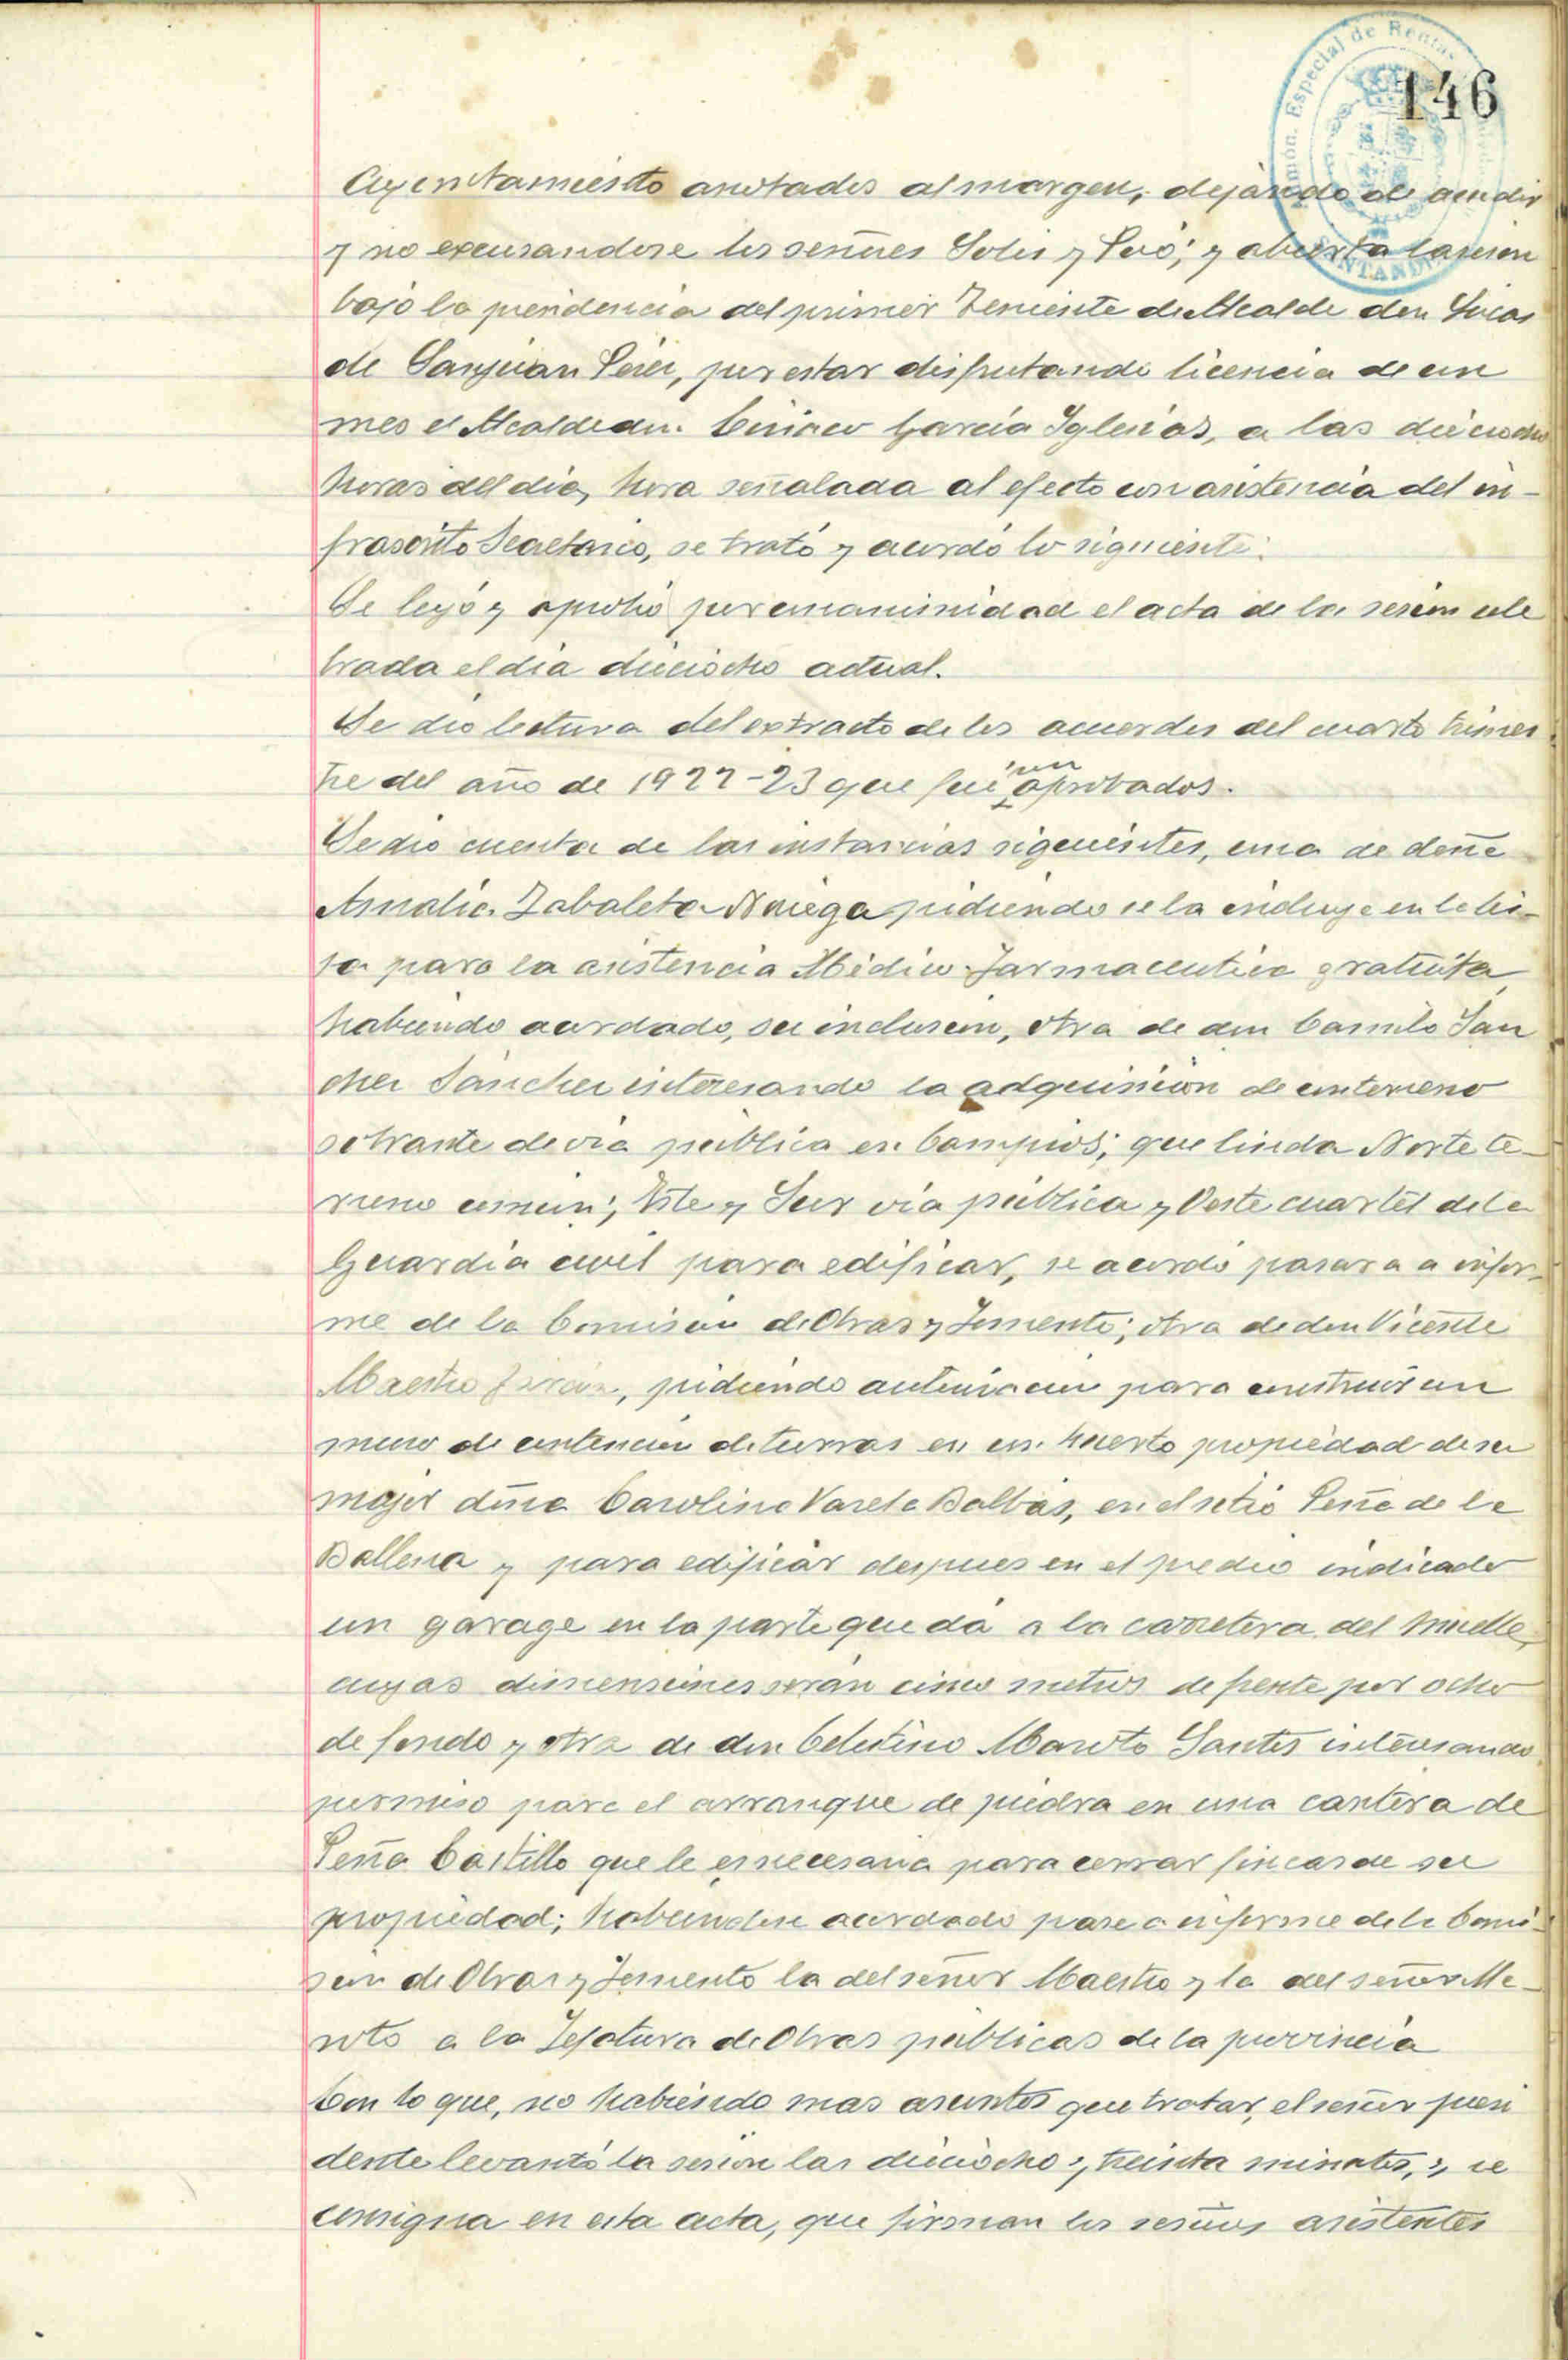 146
Ayuntamiento anotados al margen, dejando de acudir
y no excusandose los señores Solis y Peró; y abierta la sesion
bajo la presidencia del primer Teniente de Alcalde don Lucas
de Sanjuan Perez, por estar disfrutando licencia de un
mes el Alcalde don Ciriaco García Iglesias, a las dieciocho
horas del dia, hora señalada al efecto con asistencia del in-
frascrito Secretario, se trató y acordó lo siguiente:
Se leyó y aprobó por unanimidad el acta de la sesion cele
brada el dia dieciocho actual.
Se dio lectura del extracto de los acuerdos del cuarto trimes
tre del año de 1922-23 que fueron aprobados.
Se dio cuenta de las instancias siguientes, una de doña
Amalia Zabaleta Noriega pidiendo se la incluya en la lis-
ta para la asistencia Médico Farmaceutica gratuita,
habiendo acordado, su inclusion, otra de don Camilo San
chez Sánchez interesando la adquisicion de un terreno
sobrante de via publica en Campios; que linda Norte te-
rreno comun; Este y Sur via pública y Oeste cuartel de la
Guardia civil para edificar, se acordó pasara a infor-
me de la Comision de Obras y Fomento; otra de don Vicente
Maestro, pidiendo autorizacion para construir un
muro de contencion de tierras en un huerto propiedad de su
mujer doña Carolina Varela Balbás, en el sitio Peña de la
Ballena y para edificar despues en el predio indicado
un garage en la parte que da a la carretera del Muelle,
cuyas dimensiones serán cinco metros de frente por ocho
de fondo y otra de don Celestino Maroto Santos interesando
permiso para el arranque de piedra en una cantera de
Peña Castillo que le es necesaria para cerrar fincas de su
propiedad; habiendose acordado pase a informe de la Comi-
sion de Obras y Fomento la del señor Maestro y la del señor Ma-
roto a la Jefatura de Obras públicas de la provincia
Con lo que, no habiendo mas asuntos que tratar, el señor presi
dente levantó la sesion las dieciocho y treinta minutos, y se
consigna en esta acta, que firman los señores asistentes